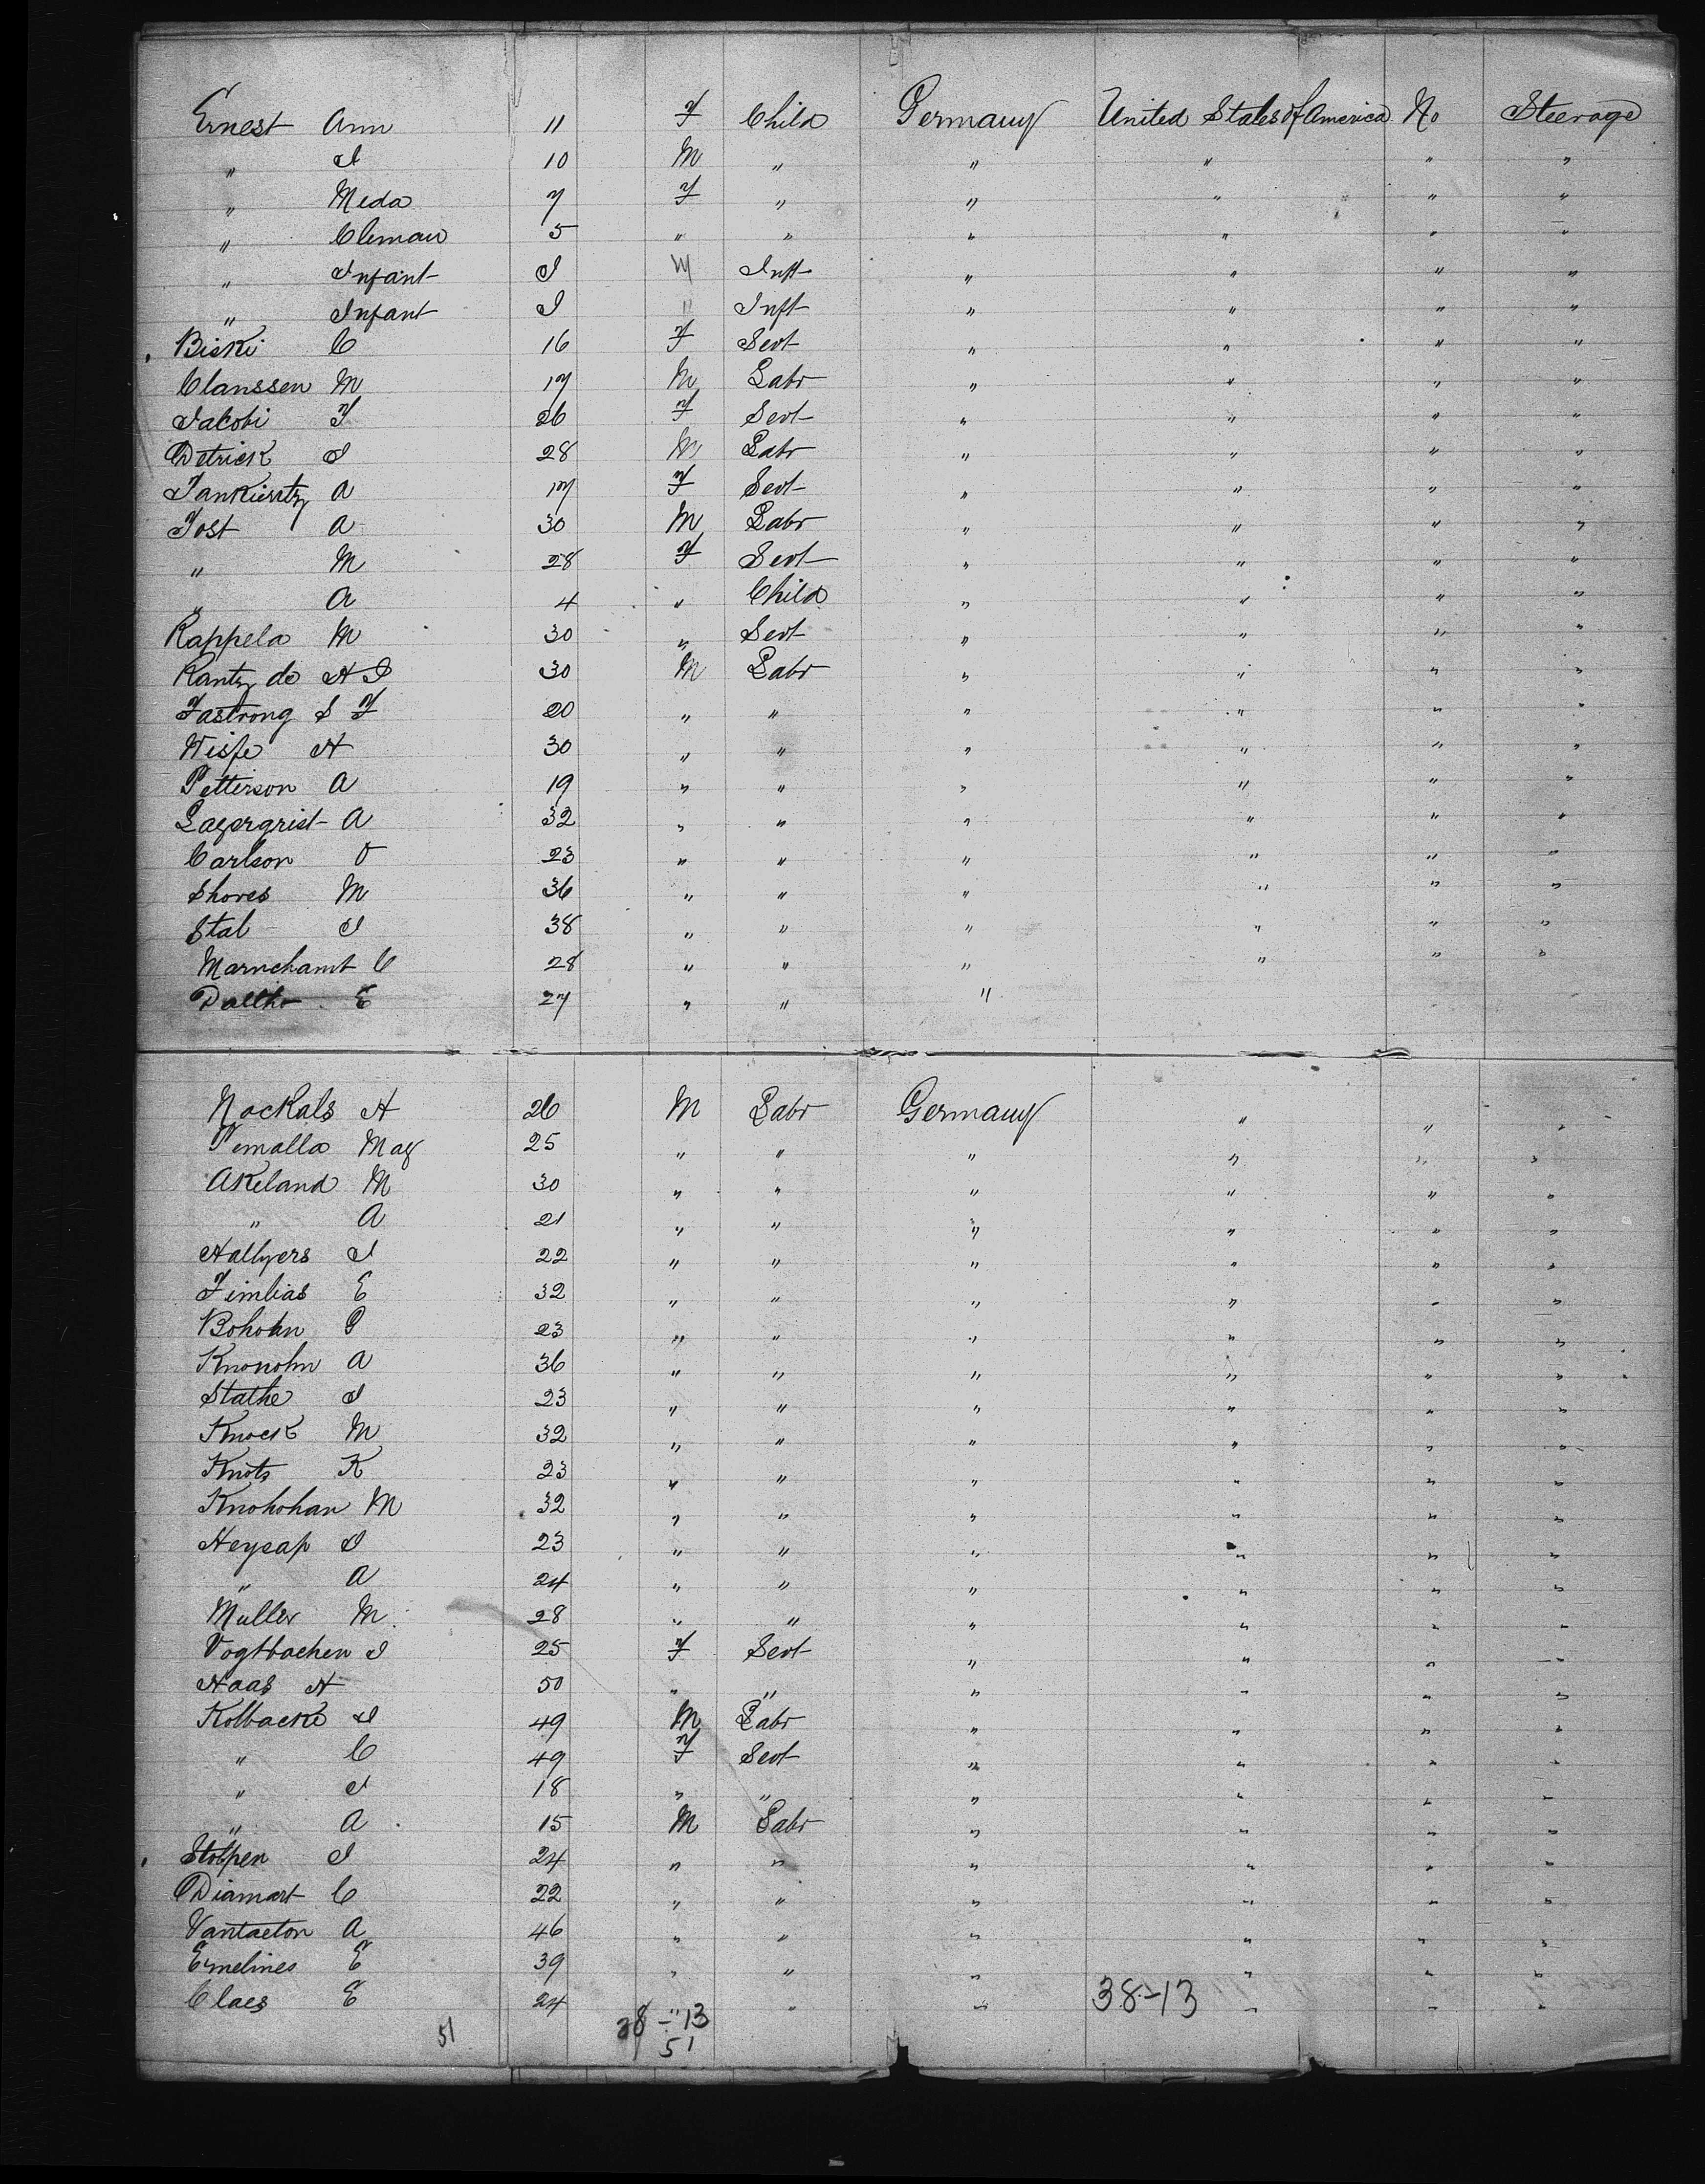 Ernest Ann 11 F Child Germany United States of America No Steerage
" J 10 M " " " " "
" Meda 7 F " " " " "
" Cleman 5 " " " " " "
" Infant I M Inft " " " "
" Infant I " Inft " " " "
Biski C 16 F Sevt " " " "
Clanssen M 17 M Labr " " " "
Jacobi F 26 F Sevt " " " "
Detrick J 28 M Labr " " " "
A 17 F Sevt " " " "
Jost A 30 M Labr " " " "
" M 28 F Sevt " " " "
" A 4 " Child " " " "
Rappela M 30 " Sevt " " " "
Rantz de H J 30 M Labr " " " "
Fastrong S F 20 " " " " " "
Wisfe H 30 " " " " " "
Petterson A 19 " " " " " "
Lagergrist A 32 " " " " " "
Carlson O 23 " " " " " "
Shores M 36 " " " " " "
Stal J 38 " " " " " "
Marnchamt C 28 " " " " " "
E 27 " " "
Nockals H 26 M Labr Germany " " "
Pemalla Mag 25 " " " " " "
Akeland M 30 " " " " " "
" A 21 " " " " " "
Hallyers J 22 " " " " " "
Fimlias E 32 " " " " " "
Bohohn G 23 " " " " " "
Knonohn A 36 " " " " " "
Stathe J 23 " " " " " "
Knock M 32 " " " " " "
Knots K 23 " " " " " "
Knohohan M 32 " " " " " "
Heysap J 23 " " " " " "
" A 24 " " " " " "
Muller M 28 " " " " " "
Vogtbachen J 25 F Sevt " " " "
Haas H 50 " " " " " "
Kolbacke J 49 M Labr " " " "
" C 49 F Sevt " " " "
" J 18 " " " " " "
" A 15 M Labr " " " "
Stolpen J 24 " " " " " "
Diamart C 22 " " " " " "
Vantaeton A 46 " " " " " "
Emelines E 39 " " " " " "
Claes E 24 " " " 38-13 " " "
51 38-13
51